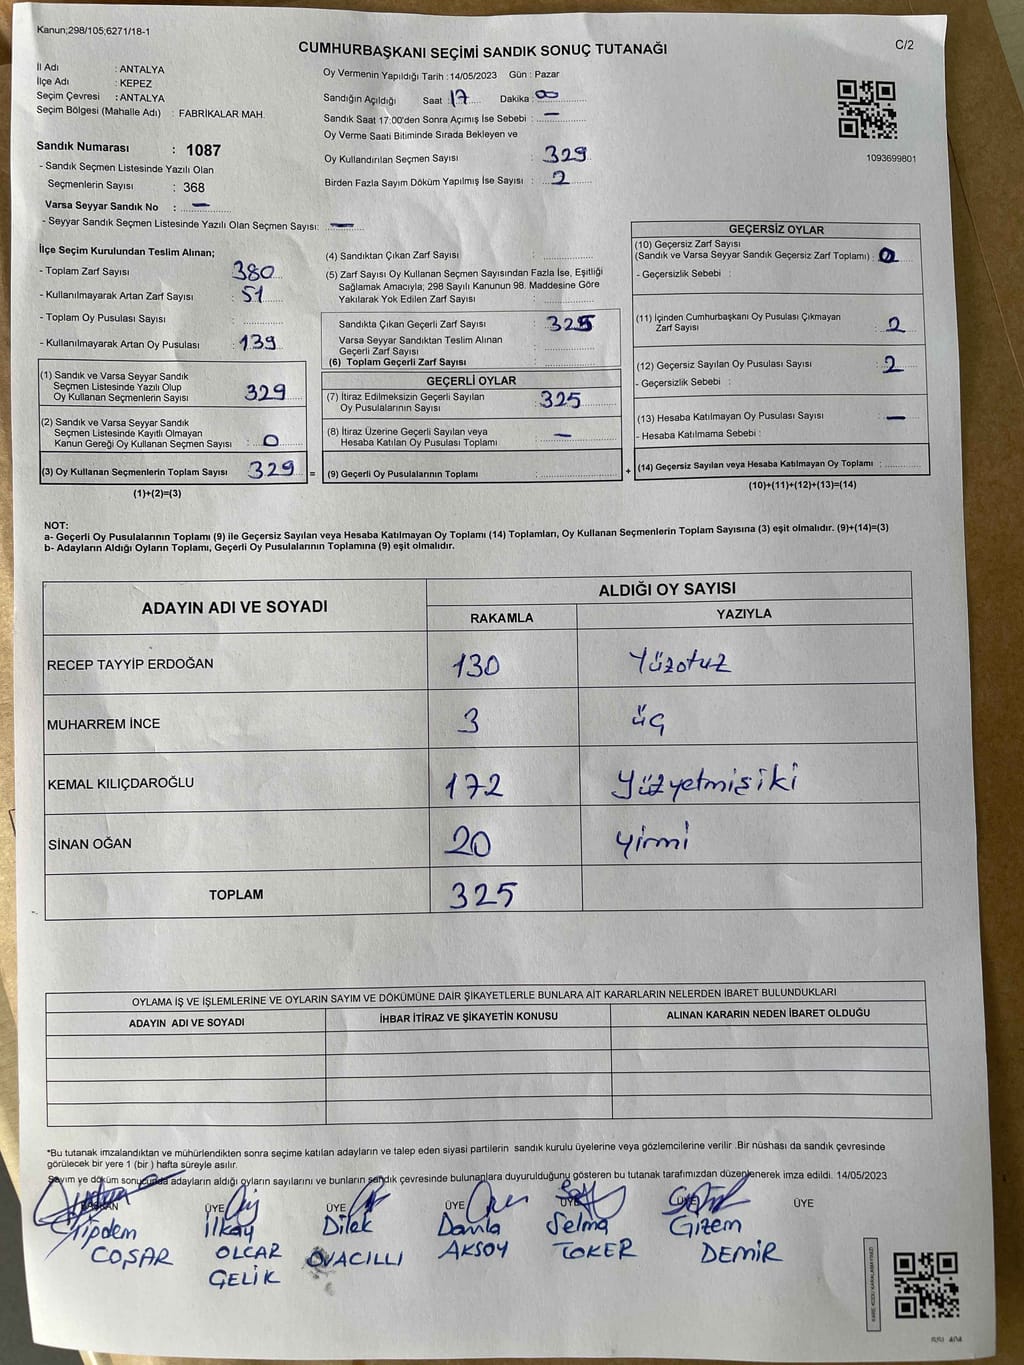 Kanun;298/105;6271/18-1
CUMHURBAŞKANI SEÇİMİ SANDIK SONUÇ TUTANAĞI
C/2
İl Adı : ANTALYA
İlçe Adı : KEPEZ
Seçim Çevresi : ANTALYA
Seçim Bölgesi (Mahalle Adı) : FABRİKALAR MAH.
Sandık Numarası : 1087
- Sandık Seçmen Listesinde Yazılı Olan
Seçmenlerin Sayısı : 368
Varsa Seyyar Sandık No : —
- Seyyar Sandık Seçmen Listesinde Yazılı Olan Seçmen Sayısı: —
Oy Vermenin Yapıldığı Tarih : 14/05/2023 Gün : Pazar
Sandığın Açıldığı Saat : 17 Dakika : 00
Sandık Saat 17:00'den Sonra Açımış İse Sebebi : —
Oy Verme Saati Bitiminde Sırada Bekleyen ve
Oy Kullandırılan Seçmen Sayısı : 329
Birden Fazla Sayım Döküm Yapılmış İse Sayısı : 2
1093699801
İlçe Seçim Kurulundan Teslim Alınan;
- Toplam Zarf Sayısı 380
- Kullanılmayarak Artan Zarf Sayısı : 51
- Toplam Oy Pusulası Sayısı :
- Kullanılmayarak Artan Oy Pusulası : 139
(1) Sandık ve Varsa Seyyar Sandık
Seçmen Listesinde Yazılı Olup
Oy Kullanan Seçmenlerin Sayısı 329
(2) Sandık ve Varsa Seyyar Sandık
Seçmen Listesinde Kayıtlı Olmayan
Kanun Gereği Oy Kullanan Seçmen Sayısı : 0
(3) Oy Kullanan Seçmenlerin Toplam Sayısı 329
(1)+(2)=(3)
(4) Sandıktan Çıkan Zarf Sayısı :
(5) Zarf Sayısı Oy Kullanan Seçmen Sayısından Fazla İse, Eşitliği
Sağlamak Amacıyla; 298 Sayılı Kanunun 98. Maddesine Göre
Yakılarak Yok Edilen Zarf Sayısı :
Sandıkta Çıkan Geçerli Zarf Sayısı 325
Varsa Seyyar Sandıktan Teslim Alınan
Geçerli Zarf Sayısı :
(6) Toplam Geçerli Zarf Sayısı :
GEÇERLİ OYLAR
(7) İtiraz Edilmeksizin Geçerli Sayılan
Oy Pusulalarının Sayısı 325
(8) İtiraz Üzerine Geçerli Sayılan veya
Hesaba Katılan Oy Pusulası Toplamı : —
= (9) Geçerli Oy Pusulalarının Toplamı :
GEÇERSİZ OYLAR
(10) Geçersiz Zarf Sayısı
(Sandık ve Varsa Seyyar Sandık Geçersiz Zarf Toplamı) : 0
- Geçersizlik Sebebi :
(11) İçinden Cumhurbaşkanı Oy Pusulası Çıkmayan
Zarf Sayısı : 2
(12) Geçersiz Sayılan Oy Pusulası Sayısı : 2
- Geçersizlik Sebebi :
(13) Hesaba Katılmayan Oy Pusulası Sayısı : —
- Hesaba Katılmama Sebebi :
+ (14) Geçersiz Sayılan veya Hesaba Katılmayan Oy Toplamı :
(10)+(11)+(12)+(13)=(14)
NOT:
a- Geçerli Oy Pusulalarının Toplamı (9) ile Geçersiz Sayılan veya Hesaba Katılmayan Oy Toplamı (14) Toplamları, Oy Kullanan Seçmenlerin Toplam Sayısına (3) eşit olmalıdır. (9)+(14)=(3)
b- Adayların Aldığı Oyların Toplamı, Geçerli Oy Pusulalarının Toplamına (9) eşit olmalıdır.
ADAYIN ADI VE SOYADI
ALDIĞI OY SAYISI
RAKAMLA YAZIYLA
RECEP TAYYİP ERDOĞAN 130 Yüzotuz
MUHARREM İNCE 3 üç
KEMAL KILIÇDAROĞLU 172 Yüzyetmişiki
SİNAN OĞAN 20 yirmi
TOPLAM 325
OYLAMA İŞ VE İŞLEMLERİNE VE OYLARIN SAYIM VE DÖKÜMÜNE DAİR ŞİKAYETLERLE BUNLARA AİT KARARLARIN NELERDEN İBARET BULUNDUKLARI
ADAYIN ADI VE SOYADI İHBAR İTİRAZ VE ŞİKAYETİN KONUSU ALINAN KARARIN NEDEN İBARET OLDUĞU
*Bu tutanak imzalandıktan ve mühürlendikten sonra seçime katılan adayların ve talep eden siyasi partilerin sandık kurulu üyelerine veya gözlemcilerine verilir .Bir nüshası da sandık çevresinde
görülecek bir yere 1 (bir ) hafta süreyle asılır.
Sayım ve döküm sonucunda adayların aldığı oyların sayılarını ve bunların sandık çevresinde bulunanlara duyurulduğunu gösteren bu tutanak tarafımızdan düzenlenerek imza edildi. 14/05/2023
BAŞKAN ÜYE ÜYE ÜYE ÜYE ÜYE ÜYE
İlkay Dilek Damla Selma Gizem
COŞAR OLCAR OVACILLI AKSOY TOKER DEMİR
GELİK